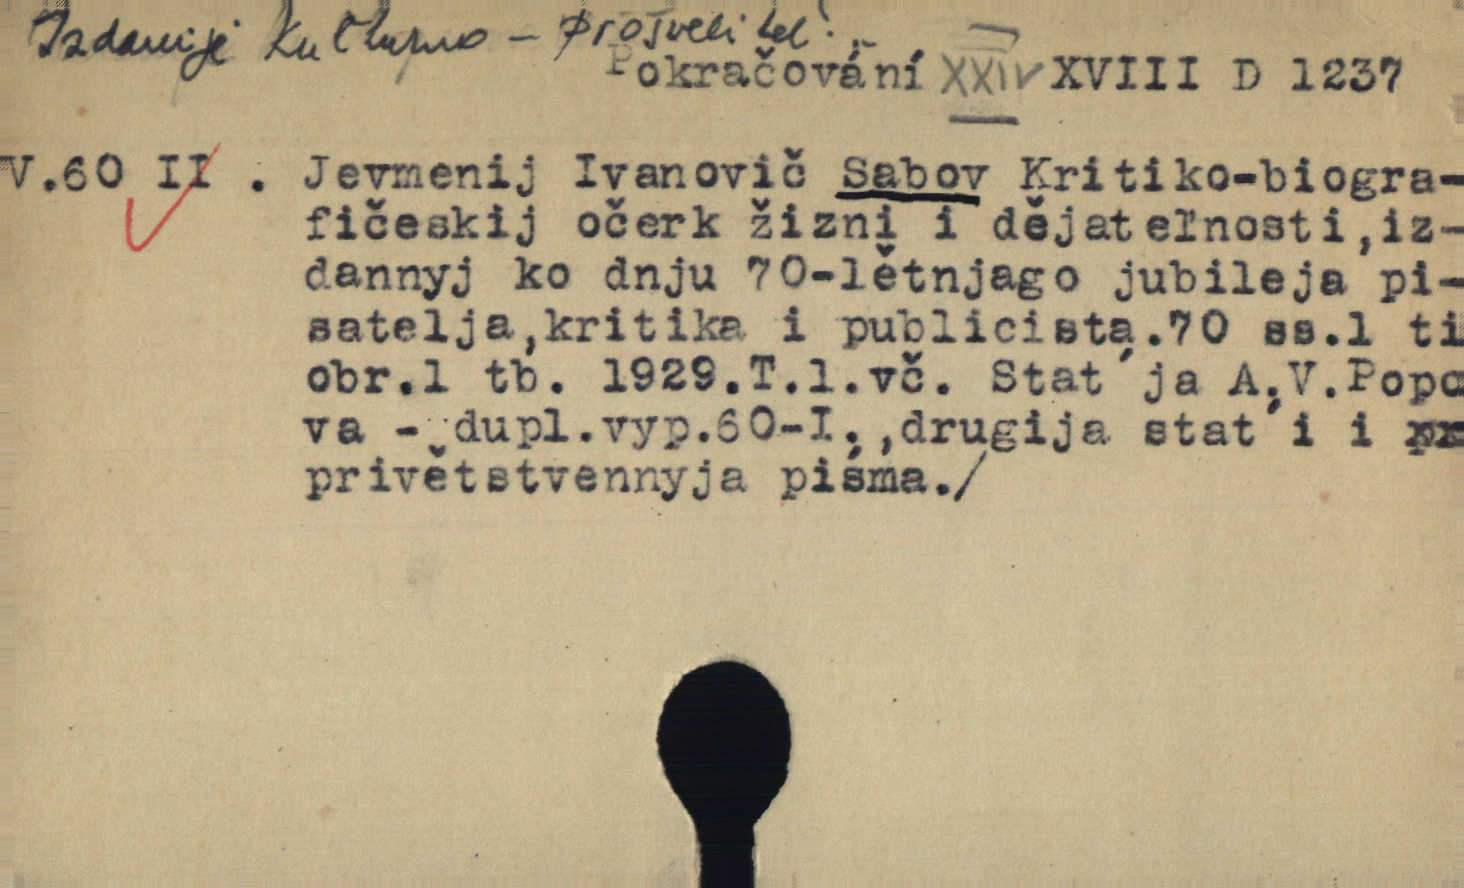 Izdanije Kulturno - prosvetitel'...
Pokračování XXIV XVIII D 1237
V.60 II . Jevmenij Ivanovič Sabov Kritiko-biogra-
fičeskij očerk žizni i dějateľnosti,iz-
dannyj ko dnju 70-lětnjago jubileja pi-
satelja,kritika i publicista.70 ss.1 ti
obr.1 tb. 1929.T.1.vč. Stat´ja A.V.Popo
va - dupl.vyp.60-I.,drugija stat´i i pr
privětstvennyja piśma./